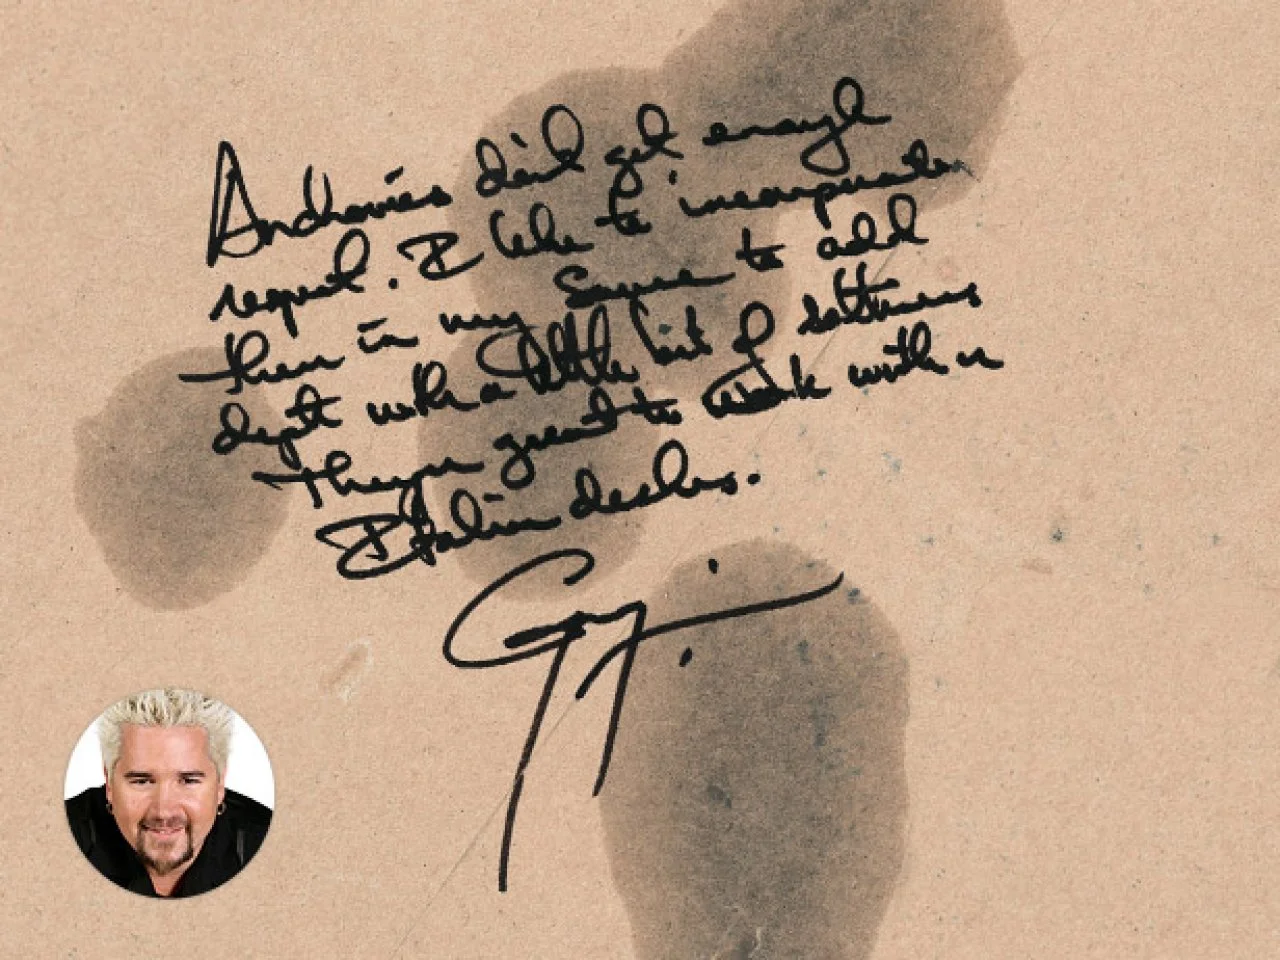 Anchovies don't get enough
respect. I like to incorporate
them in my sauce to add
depth with a little bit of saltiness
They're great to work with in
Italian dishes.
Guy